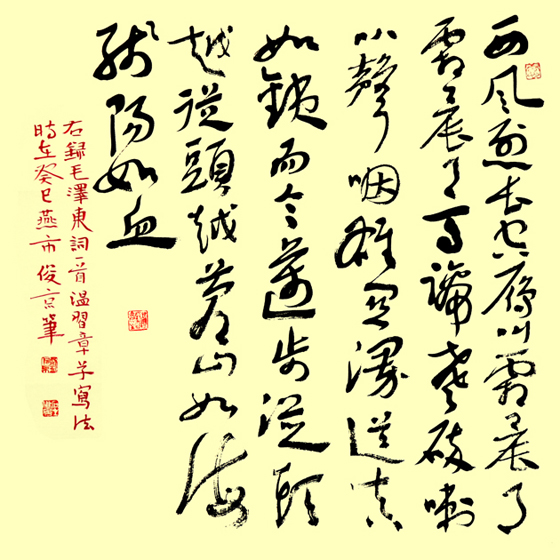 西風烈長空雁叫霜晨月
霜晨月馬蹄聲碎喇
叭聲咽雄關漫道真
如鐵而今邁步從頭
越從頭越蒼山如海
殘陽如血
右錄毛澤東詞一首溫習章草寫法
時在癸巳燕市俊京筆